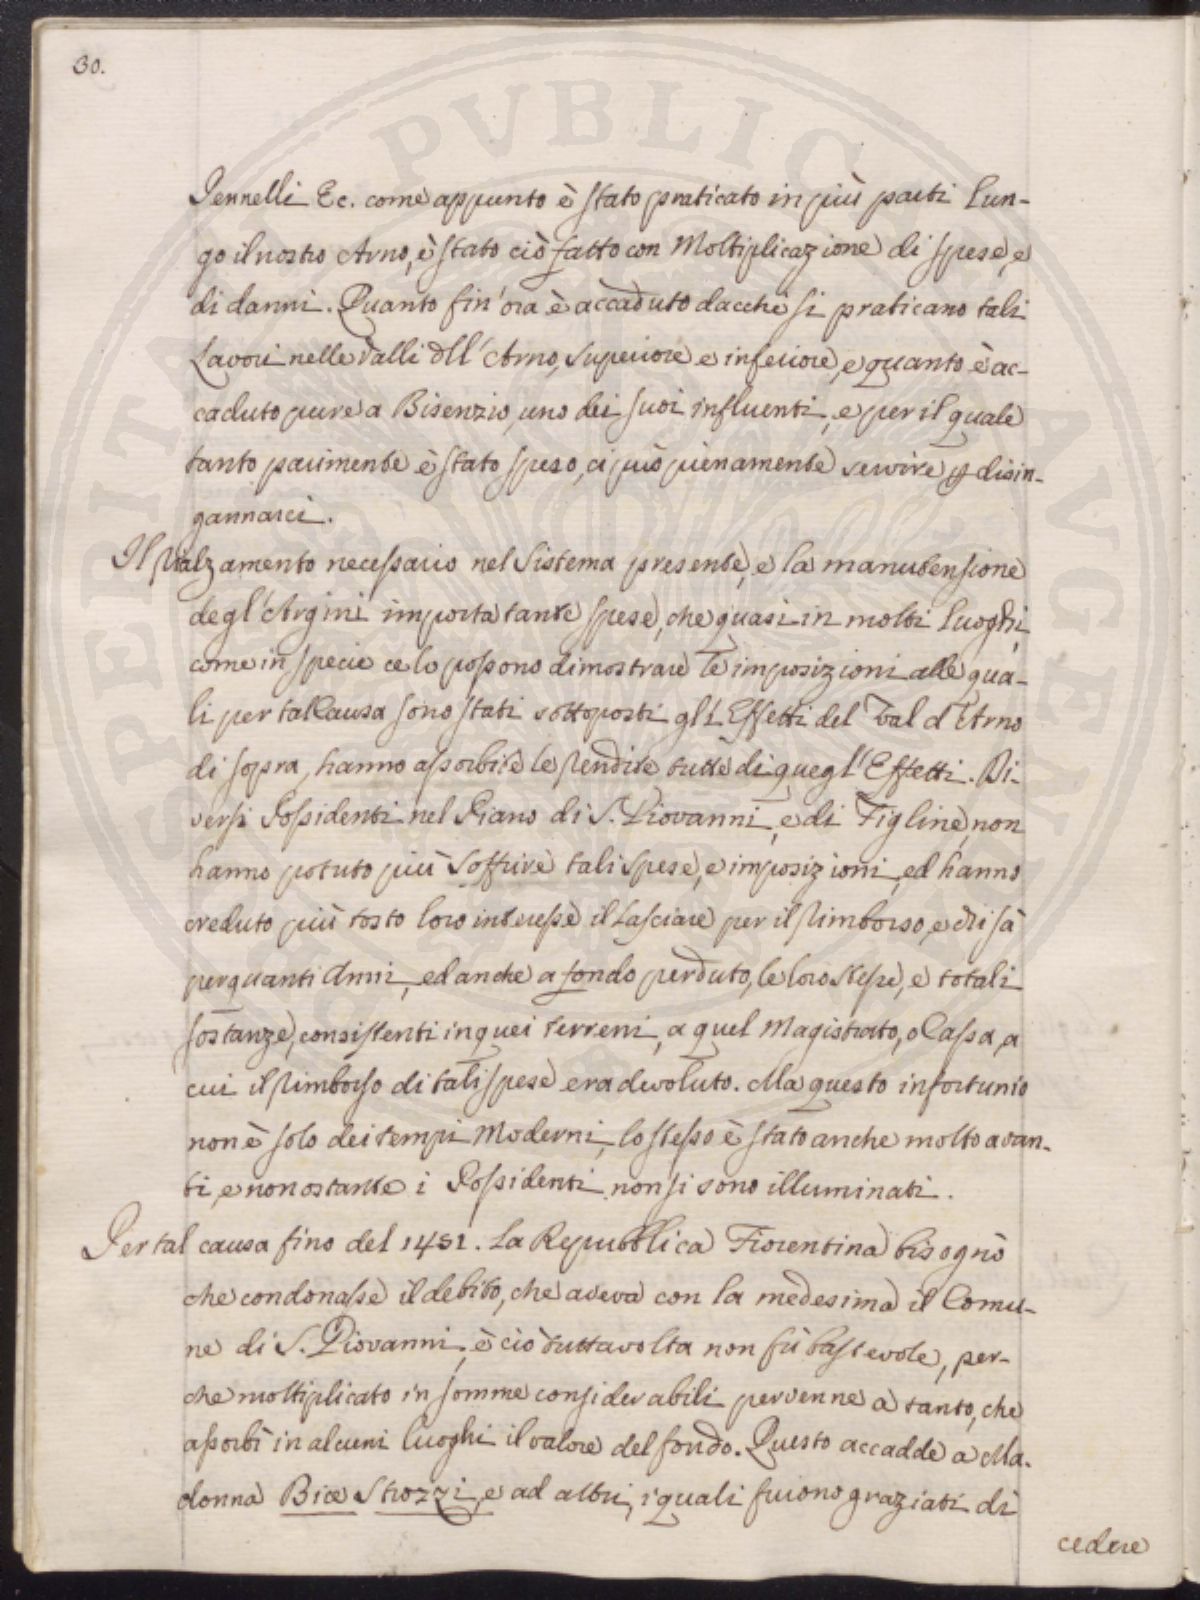 30.
Pennelli Ec. come appunto è stato praticato in più parti lun-
go il nostro Arno, è stato ciò fatto con Moltiplicazione di spese, e
di danni. Quanto fin' ora è accaduto dacchè si praticano tali
Lavori nelle Valli dell' Arno, superiore e inferiore, e quanto è ac-
caduto pure a Bisenzio, uno dei suoi influenti, e per il quale
tanto parimente è stato speso, ci può pienamente servire p disin-
gannarci.
Il rialzamento necessario nel Sistema presente, e la manutensione
degl' Argini importa tante spese, che quasi in molti luoghi,
come in specie ce lo possono dimostrare le imposizioni alle qua-
li per tal Causa sono stati sottoposti gl' Effetti del Val d' Arno
di sopra, hanno assorbite le rendite tutte di quegl' Effetti. Di-
versi Possidenti nel Piano di S. Giovanni, e di Figline, non
hanno potuto più soffrire tali spese, e imposizioni, ed hanno
creduto più tosto loro interesse il lasciare per il rimborso, e chi sà
per quanti Anni, ed anche a fondo perduto, le loro stesse, e totali
sostanze, consistenti in quei terreni, a quel Magistrato, o Cassa, a
cui il rimborso di tali spese era devoluto. Ma questo infortunio
non è solo dei tempi Moderni, lo stesso è stato anche molto avan-
ti, e non ostante i Possidenti non si sono illuminati.
Per tal causa fino del 1451. La Repubblica Fiorentina bisognò
che condonasse il debito, che aveva con la medesima il Comu-
ne di S. Giovanni, e ciò tuttavolta non fù bastevole, per-
che moltiplicato in somme considerabili pervenne a tanto, che
assorbì in alcuni luoghi il valore del fondo. Questo accadde a Ma-
donna Bice Strozzi, e ad altri, i quali furono graziati di
cedere
PERITAS PVBLICA AVGE